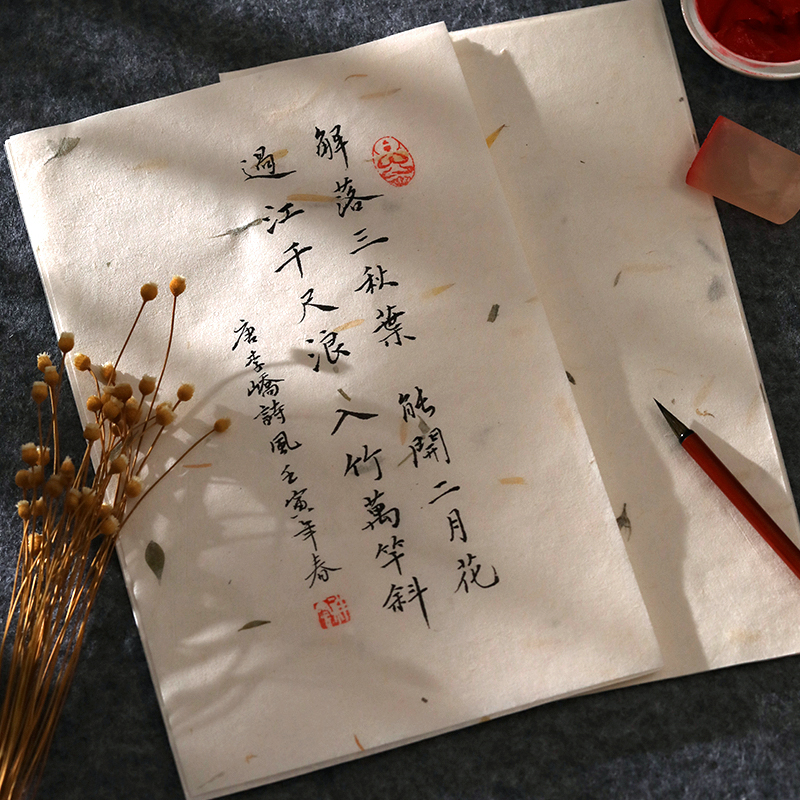 解落三秋葉 能開二月花
過江千尺浪 入竹萬竿斜
唐李嶠詩風壬寅年春